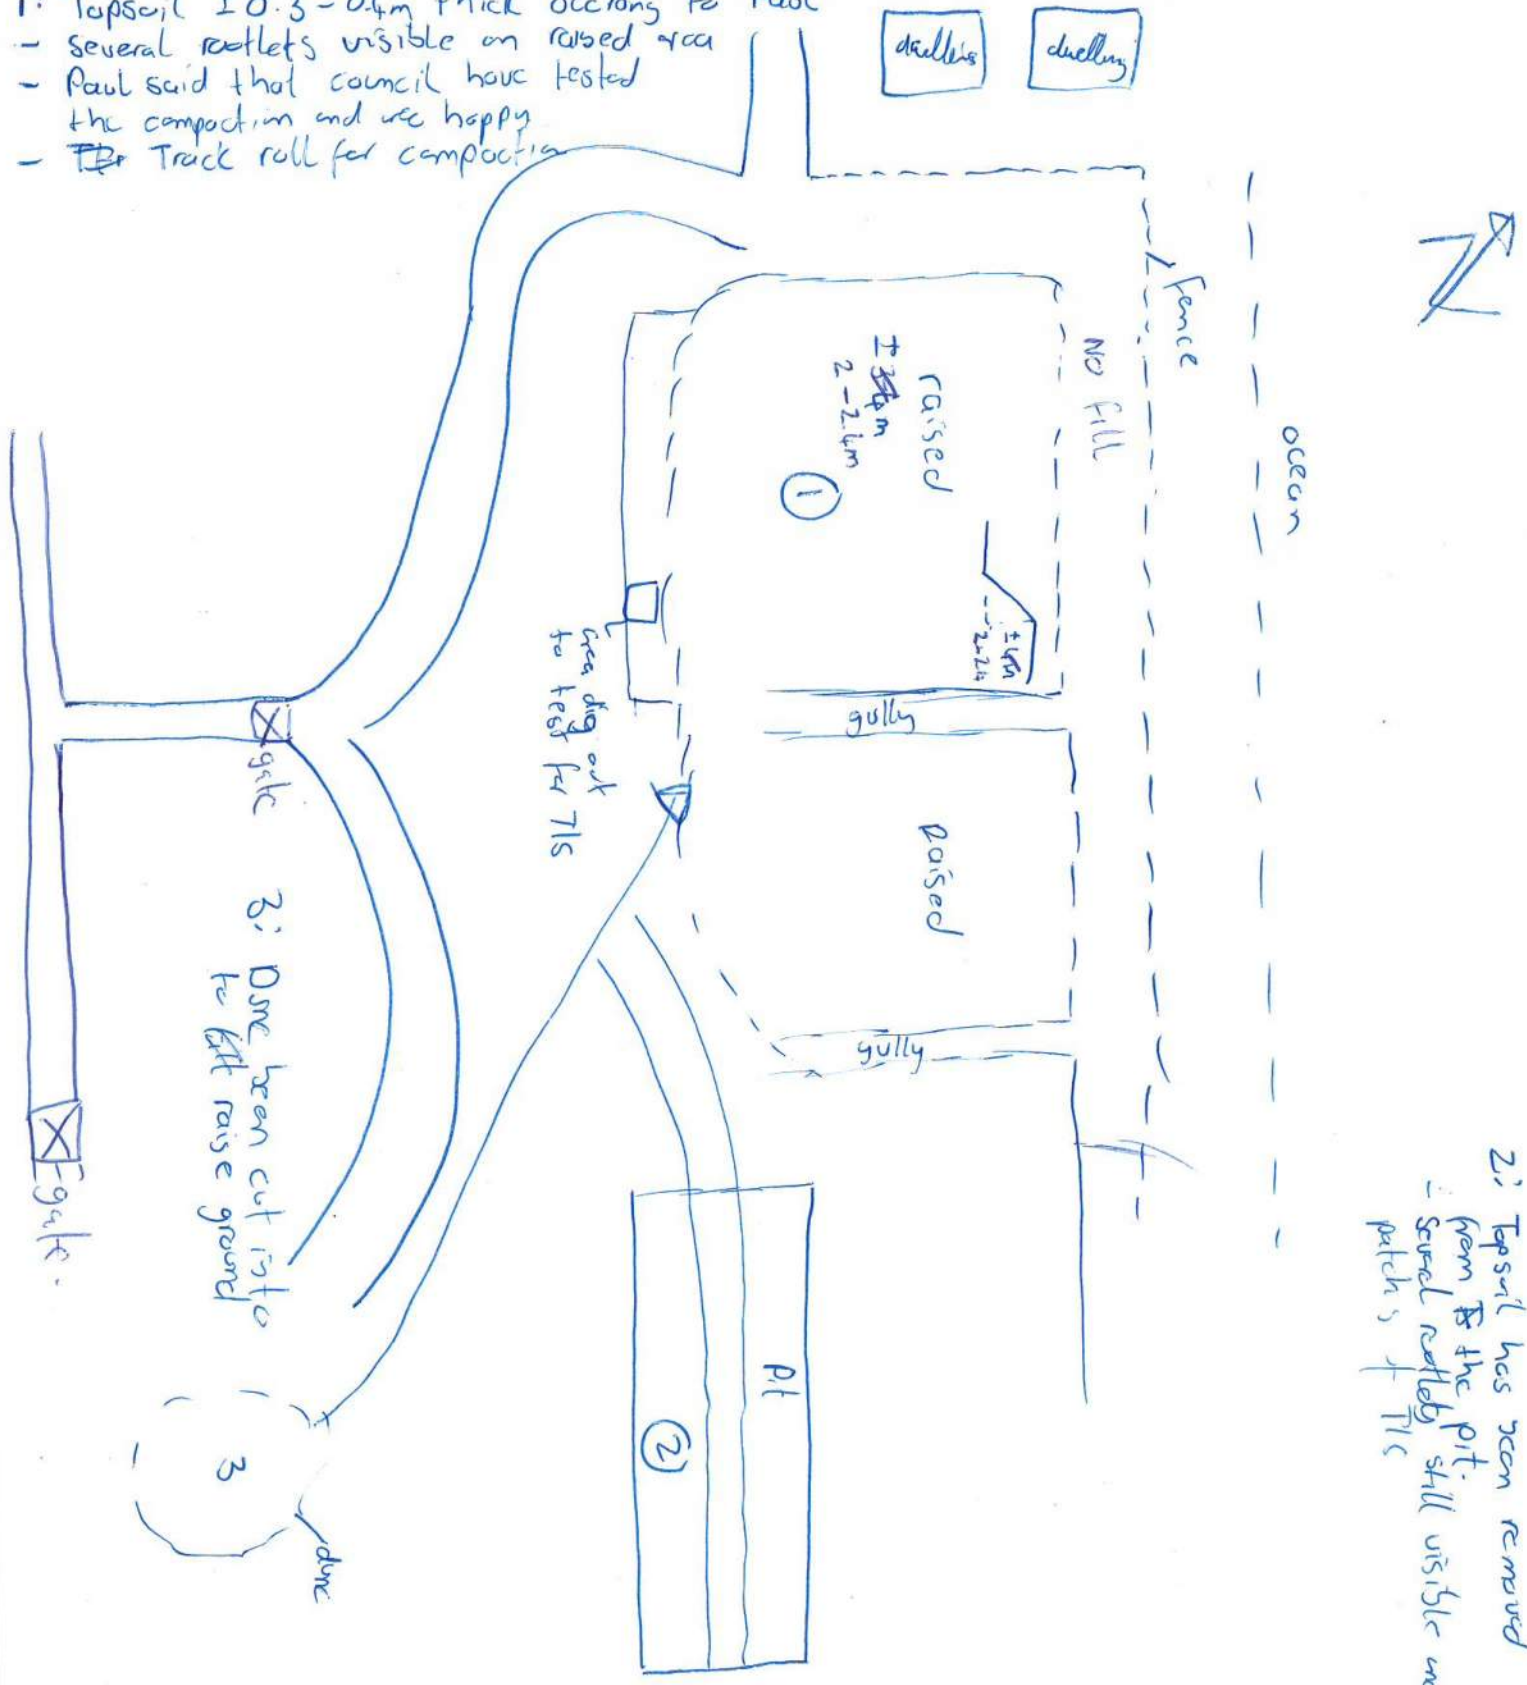 1. Topsoil ± 0.3 - 0.4m thick accrong to Paul
- Several rootlets visible on raised area
- Paul said that council have tested
the compaction and wee happy
- Track roll for compaction
dwelling
dwelling
fence
ocean
NO Fill
raised
± 34m
2 - 2.4m
1
± 4m
gully
area dig out
to test for T/s
raised
gully
gate
gate.
3: Dune been cut into
to raise ground
3
dune
Pit
2
2: Topsoil has been removed
from the pit.
- Several rootlets still visible and
patchs of T/s